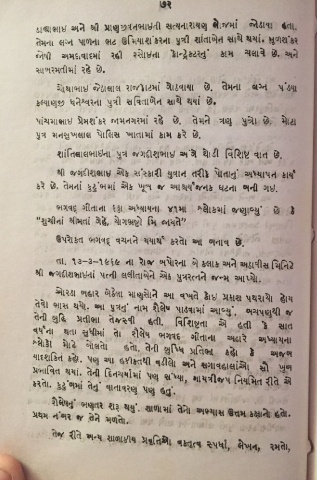 ૭૨
ડાહ્યાભાઇ અને શ્રી પ્રાણજીવનભાઇની સત્યનારાયણ ભેજમાં જોડાયા હતા.
તેમના લગ્ન પાળના ભટ ઉમિયાશંકરના પુત્રી શાંતાબેન સાથે થયાં. મૂળશંકર
જોષી અમદાવાદમાં રહી રસોડાના કોન્ટ્રેક્ટરનું કામ ચલાવે છે. અને
સાબરમતીમાં રહે છે.
ચોથાભાઇ જેઠાલાલ રાજકોટમાં ગોઠવાયા છે. તેમના લગ્ન પંડયા
કલ્યાણજી ધનેશ્વરના પુત્રી સવિતાબેન સાથે થયાં છે.
પાંચમાભાઇ પ્રેમશંકર જામનગરમાં રહે છે. તેમને ત્રણ પુત્રો છે. મોટા
પુત્ર મનસુખલાલ પોલિસ ખાતામાં કામ કરે છે.
શાંતિલાલભાઇના પુત્ર જગદીશભાઇ અંગે થોડી વિશિષ્ટ વાત છે.
શ્રી જગદીશભાઇ એક સંસ્કારી યુવાન તરીકે પોતાનું અધ્યાપન કાર્ય
કરે છે. તેમનાં કુટુંબમાં એક ખૂબ જ આશ્ચર્યજનક ઘટના બની ગઇ.
ભગવદ્ ગીતાના ૬ઠ્ઠા અધ્યાયના ૪૧માં શ્લોકમાં જણાવ્યું છે કે
"શુચીનાં શ્રીમતાં ગેહે, યોગભ્રષ્ટો ભિ જાયતે"
ઉપરોક્ત ભગવદ્ વચનને યથાર્થ કરતો આ બનાવ છે.
તા. ૧૩-૩-૧૯૬૯ ના રોજ બપોરના બે કલાક અને અડાવીસ મિનિટે
શ્રી જગદીશભાઇનાં પત્ની લલીતાબેને એક પુત્રરત્નને જન્મ આપ્યો.
ઓરડા બહાર બેઠેલા માણુસોને આ વખતે કોઇ પ્રકાશ પથરાયો હોય
તેવો ભાસ થયો. આ પુત્રનું નામ શૈલેષ પાડવામાં આવ્યું. બચપણથી જ
તેની બુદ્ધિ પ્રતીભા તેજસ્વી હતી. વિશિષ્ટતા એ હતી કે સાત
વર્ષના થતા સુધીમાં તો શૈલેષ ભગવદ્ ગીતાના અઢારે અધ્યાયના
શ્લોકો મોઢે બોલતો હતો. તેની બુદ્ધિ પ્રતિભા કહો કે અજબ
યાદશક્તિ કહો, પણ આ હકીકતથી વડીલો અને સગાવહાલાંઓ સૌ ખૂબ
પ્રભાવિત થયાં. તેની દિનચર્યામાં પણ સંધ્યા, ગાયત્રીજપ નિયમિત રીતે એ
કરતો. કુટુંબમાં તેનું વાતાવરણ પણ હતું.
શૈલેષનું ભણતર શરૂ થયું. શાળામાં તેનો અભ્યાસ ઉત્તમ કક્ષાનો હતો.
પ્રથમ નંબર જ તેને મળતો.
તેજ રીતે અન્ય શાળાકીય પ્રવૃતિઓ વક્તૃત્વ સ્પર્ધા, લેખન, રમતો,